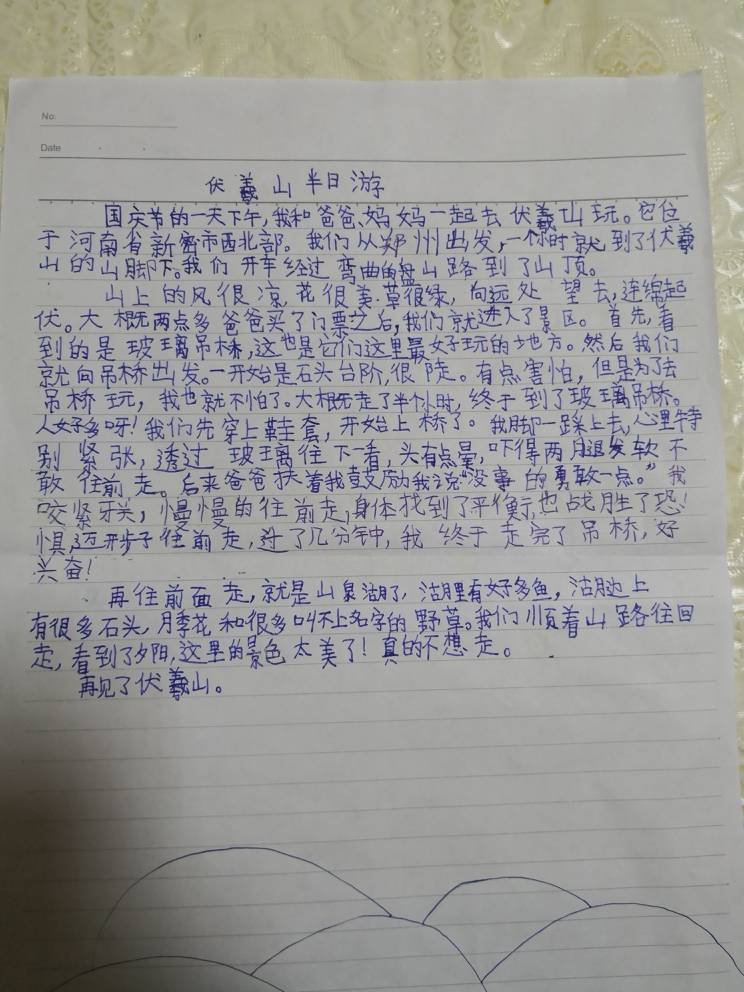 No.
Date
伏羲山半日游
国庆节的一天下午,我和爸爸、妈妈一起去伏羲山玩。它位
于河南省新密市西北部。我们从郑州出发,一个小时就到了伏羲
山的山脚下。我们开车经过弯曲的盘山路到了山顶。
山上的风很凉,花很美.草很绿,向远处望去,连绵起
伏。大概两点多爸爸买了门票之后,我们就进入了景区。首先,看
到的是玻璃吊桥,这也是它们这里最好玩的地方。然后我们
就向吊桥出发。一开始是石头台阶,很陡。有点害怕,但是为了去
吊桥玩,我也就不怕了。大概走了半个小时,终于到了玻璃吊桥。
人好多呀!我们先穿上鞋套,开始上桥了。我脚一踩上去,心里特
别紧张,透过玻璃往下一看,头有点晕,吓得两腿发软不
敢往前走。后来爸爸扶着我鼓励我说“没事的勇敢一点。”我
咬紧牙关,慢慢的往前走,身体找到了平衡,也战胜了恐
惧,迈开步子往前走,过了几分钟,我终于走完了吊桥,好
兴奋!
再往前面走,就是山泉湖了,湖里有好多鱼,湖边上
有很多石头,月季花和很多叫不上名字的野草。我们顺着山路往回
走,看到了夕阳,这里的景色太美了!真的不想走。
再见了伏羲山。